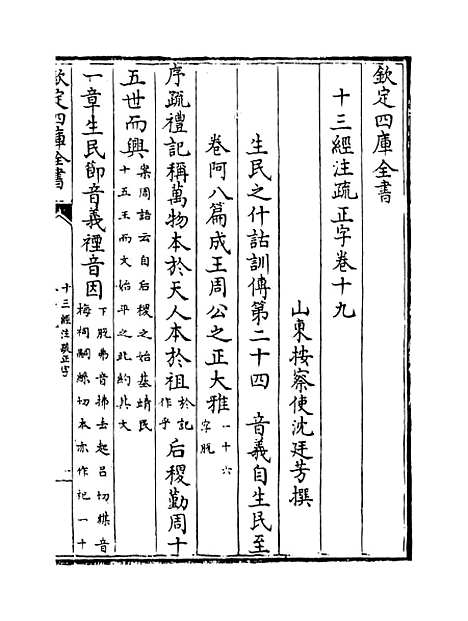 欽定四庫全書
十三經注疏正字卷十九
山東按察使沈廷芳撰
生民之什詁訓傳第二十四　音義自生民至
卷阿八篇成王周公之正大雅一十六字脫
序疏禮記稱萬物本於天人本於祖於記作乎后稷勤周十
五世而興案周語云自后稷之始基靖民十五王而文始平之此約其文
一章生民節音義禋音因下脫弗音拂去起呂切禖音梅祠嗣絲切禾亦作祀一十
欽定四庫全書
十三經注疏正字
一